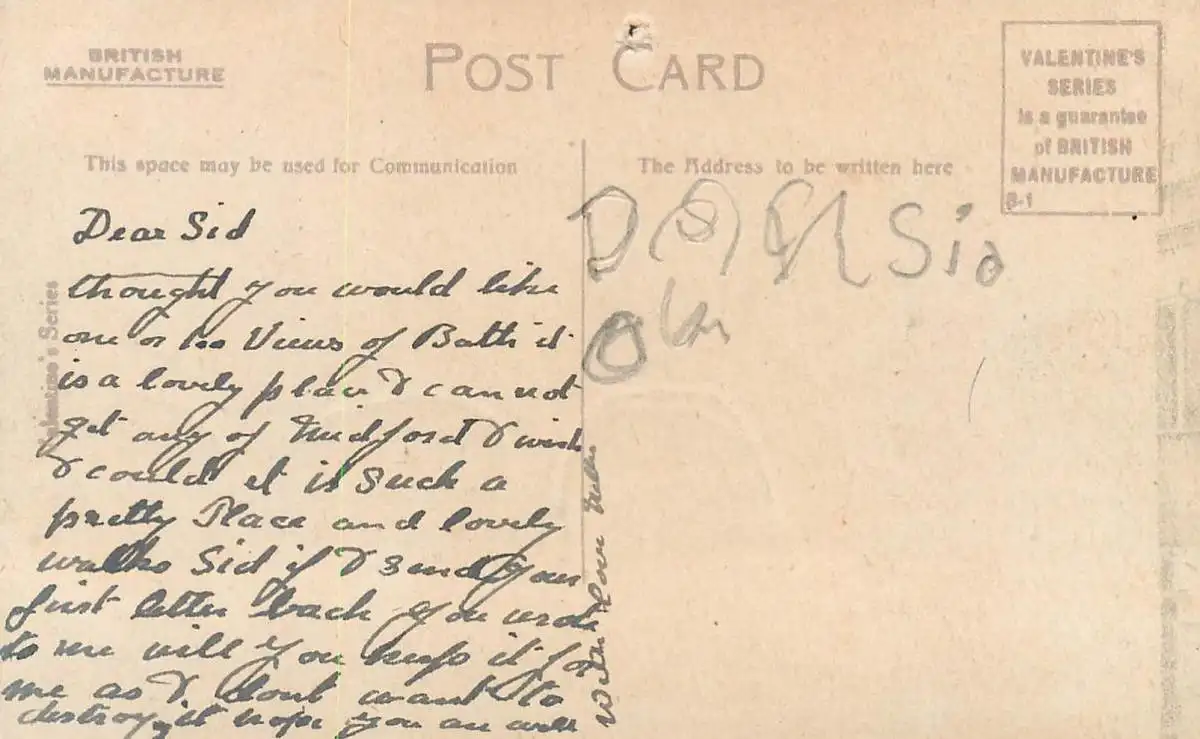 BRITISH
MANUFACTURE
POST CARD
VALENTINE'S
SERIES
is a guarantee
of BRITISH
MANUFACTURE
B-1
This space may be used for Communication
The Address to be written here
Valentine's Series
Dear Sid
thought you would like
one or too Views of Bath it
is a lovely place I cannot
get any of Midford I wish
I could it is such a
pretty Place and lovely
walks Sid if I send your
first letter back you wrote
to me will you keep it for
me as I dont want to
destroy it hope you are well
With love
D
Sid